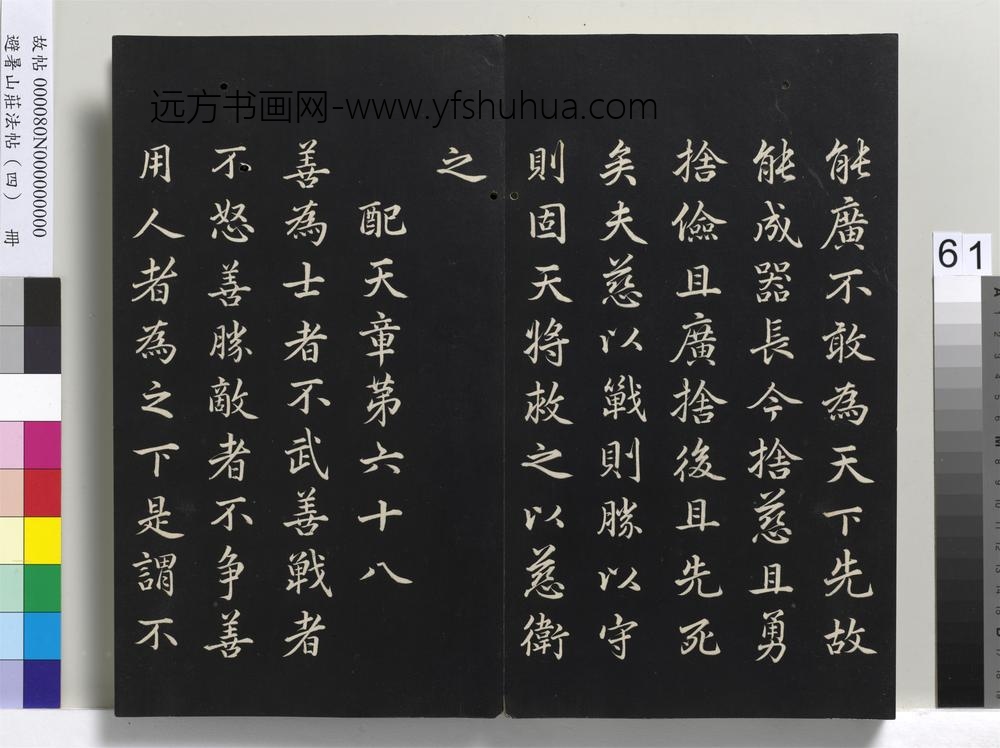 能廣不敢為天下先故
能成器長今捨慈且勇
捨儉且廣捨後且先死
矣夫慈以戰則勝以守
則固天将救之以慈衛
之
配天章第六十八
善為士者不武善戰者
不怒善勝敵者不争善
用人者為之下是謂不
远方书画网-www.yfshuhua.com
故帖 000080N000000000
避暑山莊法帖(四) 冊
61